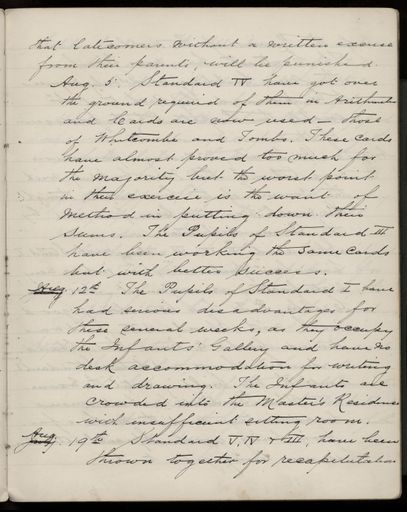 that latecomers without a written excuse
from their parents, will be punished.
Aug. 5. Standard IV have got over
the ground required of them in Arithmetic
and Cards are now used – those
of Whitcombe and Tombs. These cards
have almost proved too much for
the majority but the worst point
in their exercise is the want of
method in putting down their
sums. The Pupils of Standard III
have been working the same cards
but with better success.
Aug 12th The Pupils of Standard I have
had serious disadvantages for
these several weeks, as they occupy
the Infants' Gallery and have no
desk accommodation for writing
and drawing. The Infants are
crowded into the Master's Residence
with insufficient sitting room.
Aug.
July. 19th Standard V, IV & III, have been
thrown together for recapitulation